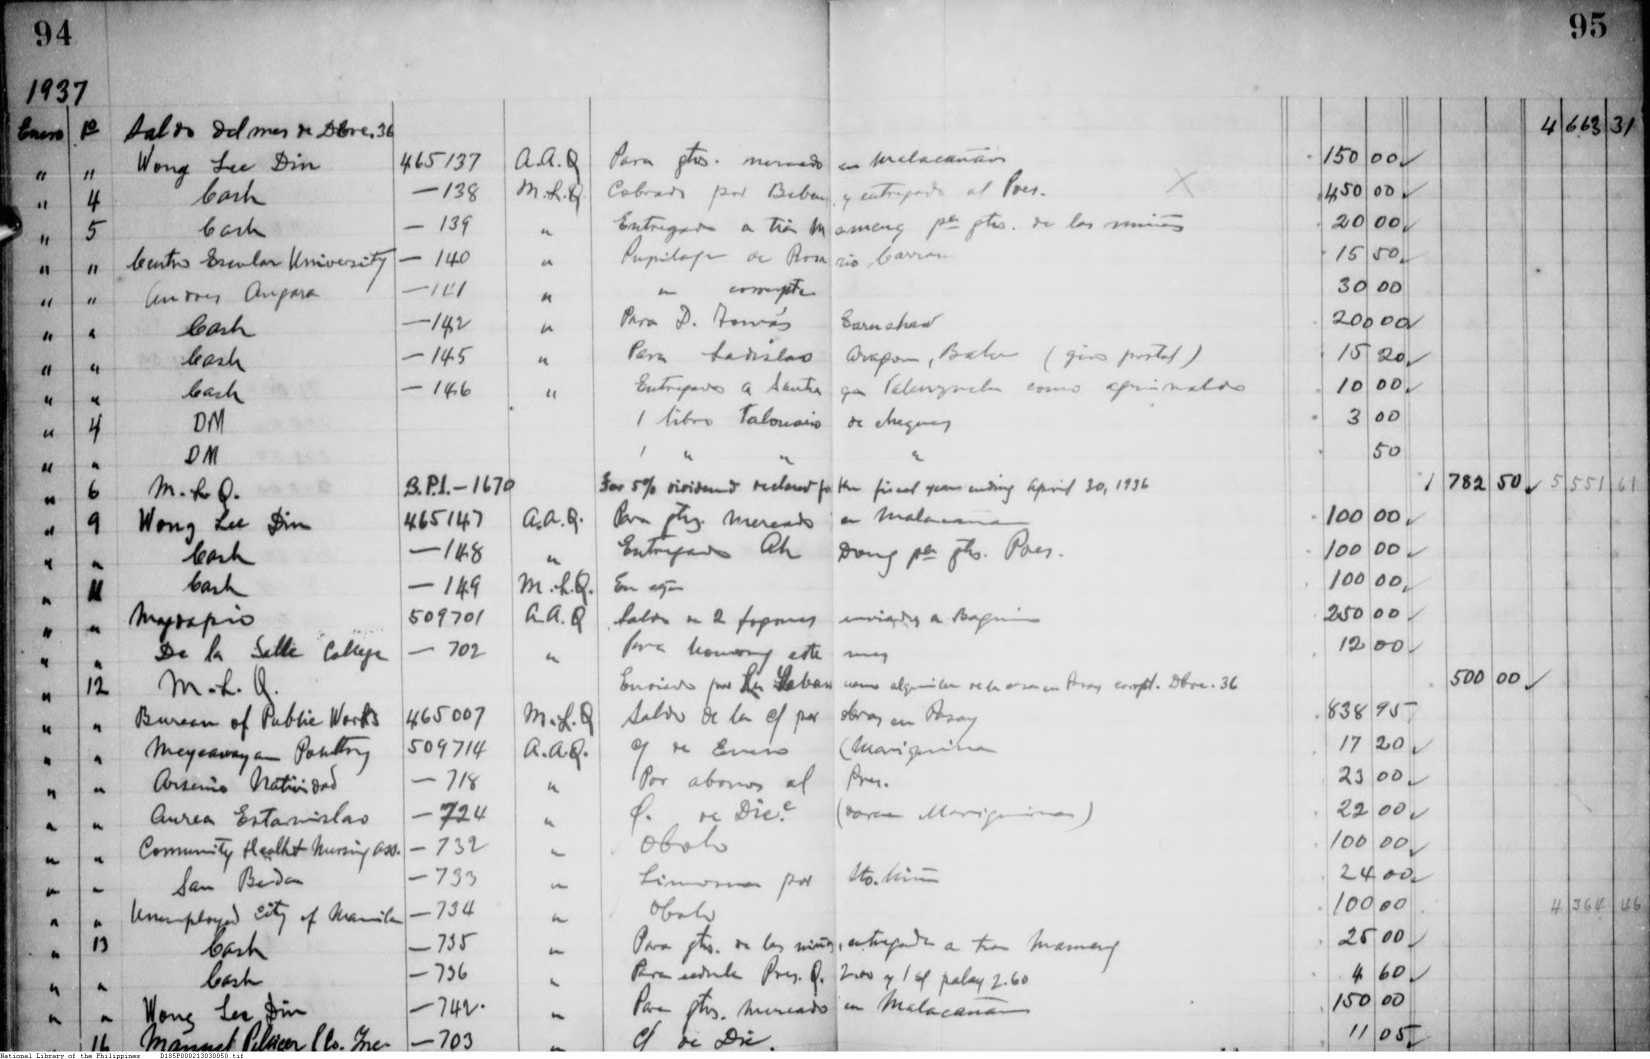 94 95
1937
Enero 1º Saldo del mes de Dbre. 36 4 663 31
" " Wong Lee Din 465137 A.A.Q Para gtos. mercado en Malacañan 150 00
" 4 Cash — 138 M.L.Q. Cobrado por y entregado al Pres. 450 00
" 5 Cash — 139 " Entregado a tia Mameng pa gtos. de los niños 20 00
" " Centro Escolar University — 140 " Pupilaje de Rosario 15 50
" " Andres Angara — 141 " " 30 00
" " Cash — 142 " Para D. Tomás Earnshaw 200 00
" " Cash — 145 " Para Ladislao Aragon, (giro postal) 15 20
" " Cash — 146 " Entregado a como aguinaldo 10 00
" 4 DM 1 libro talonario de cheques 3 00
" " DM 1 " " " 50
" 6 M.L.Q. B.P.I. — 1670 For 5% dividend declared for the fiscal year ending April 30, 1936 1 782 50 5 551 61
" 9 Wong Lee Din 465147 A.A.Q. Para gtos. mercado en Malacañan 100 00
" " Cash — 148 " Entregado Ah Dong pa gtos. Pres. 100 00
" 11 Cash — 149 M.L.Q. 100 00
" " Magdapio 509701 A.A.Q Saldo de 2 fogones enviados a Baguio 250 00
" " De la Salle College — 702 " Para este mes 12 00
" 12 M.L.Q. Enviado por como alquiler de la casa en Pasay Dbre. 36 500 00
" " Bureau of Public Works 465007 M.L.Q Saldo de la c/ por obras en Pasay 838 95
" " Meycawayan Poultry 509714 A.A.Q. c/ de Enero (Mariquina 17 20
" " Arsenio Natividad — 718 " Por abonos al Pres. 23 00
" " Aurea Estanislao — 724 " de Dice. Mariquina) 22 00
" " Comunity Health Nursing Ass. — 732 " Obolo 100 00
" " San Beda — 733 " Limosna por Sto. Niño 24 00
" " Unemployed City of Manila — 734 " Obolo 100 00 4 364 46
" 13 Cash — 735 " Para gtos. de los niños, entregado a tia Mameng 25 00
" " Cash — 736 " Para cedula Pres. Q. 2.00 y 1 palay 2.60 4 60
" " Wong Lee Din — 742 " Para gtos. mercado en Malacañan 150 00
" 16 Manuel Pellicer Co. Inc — 703 c/ de Dic. 11 05
National Library of the Philippines D185P000213030050.tif